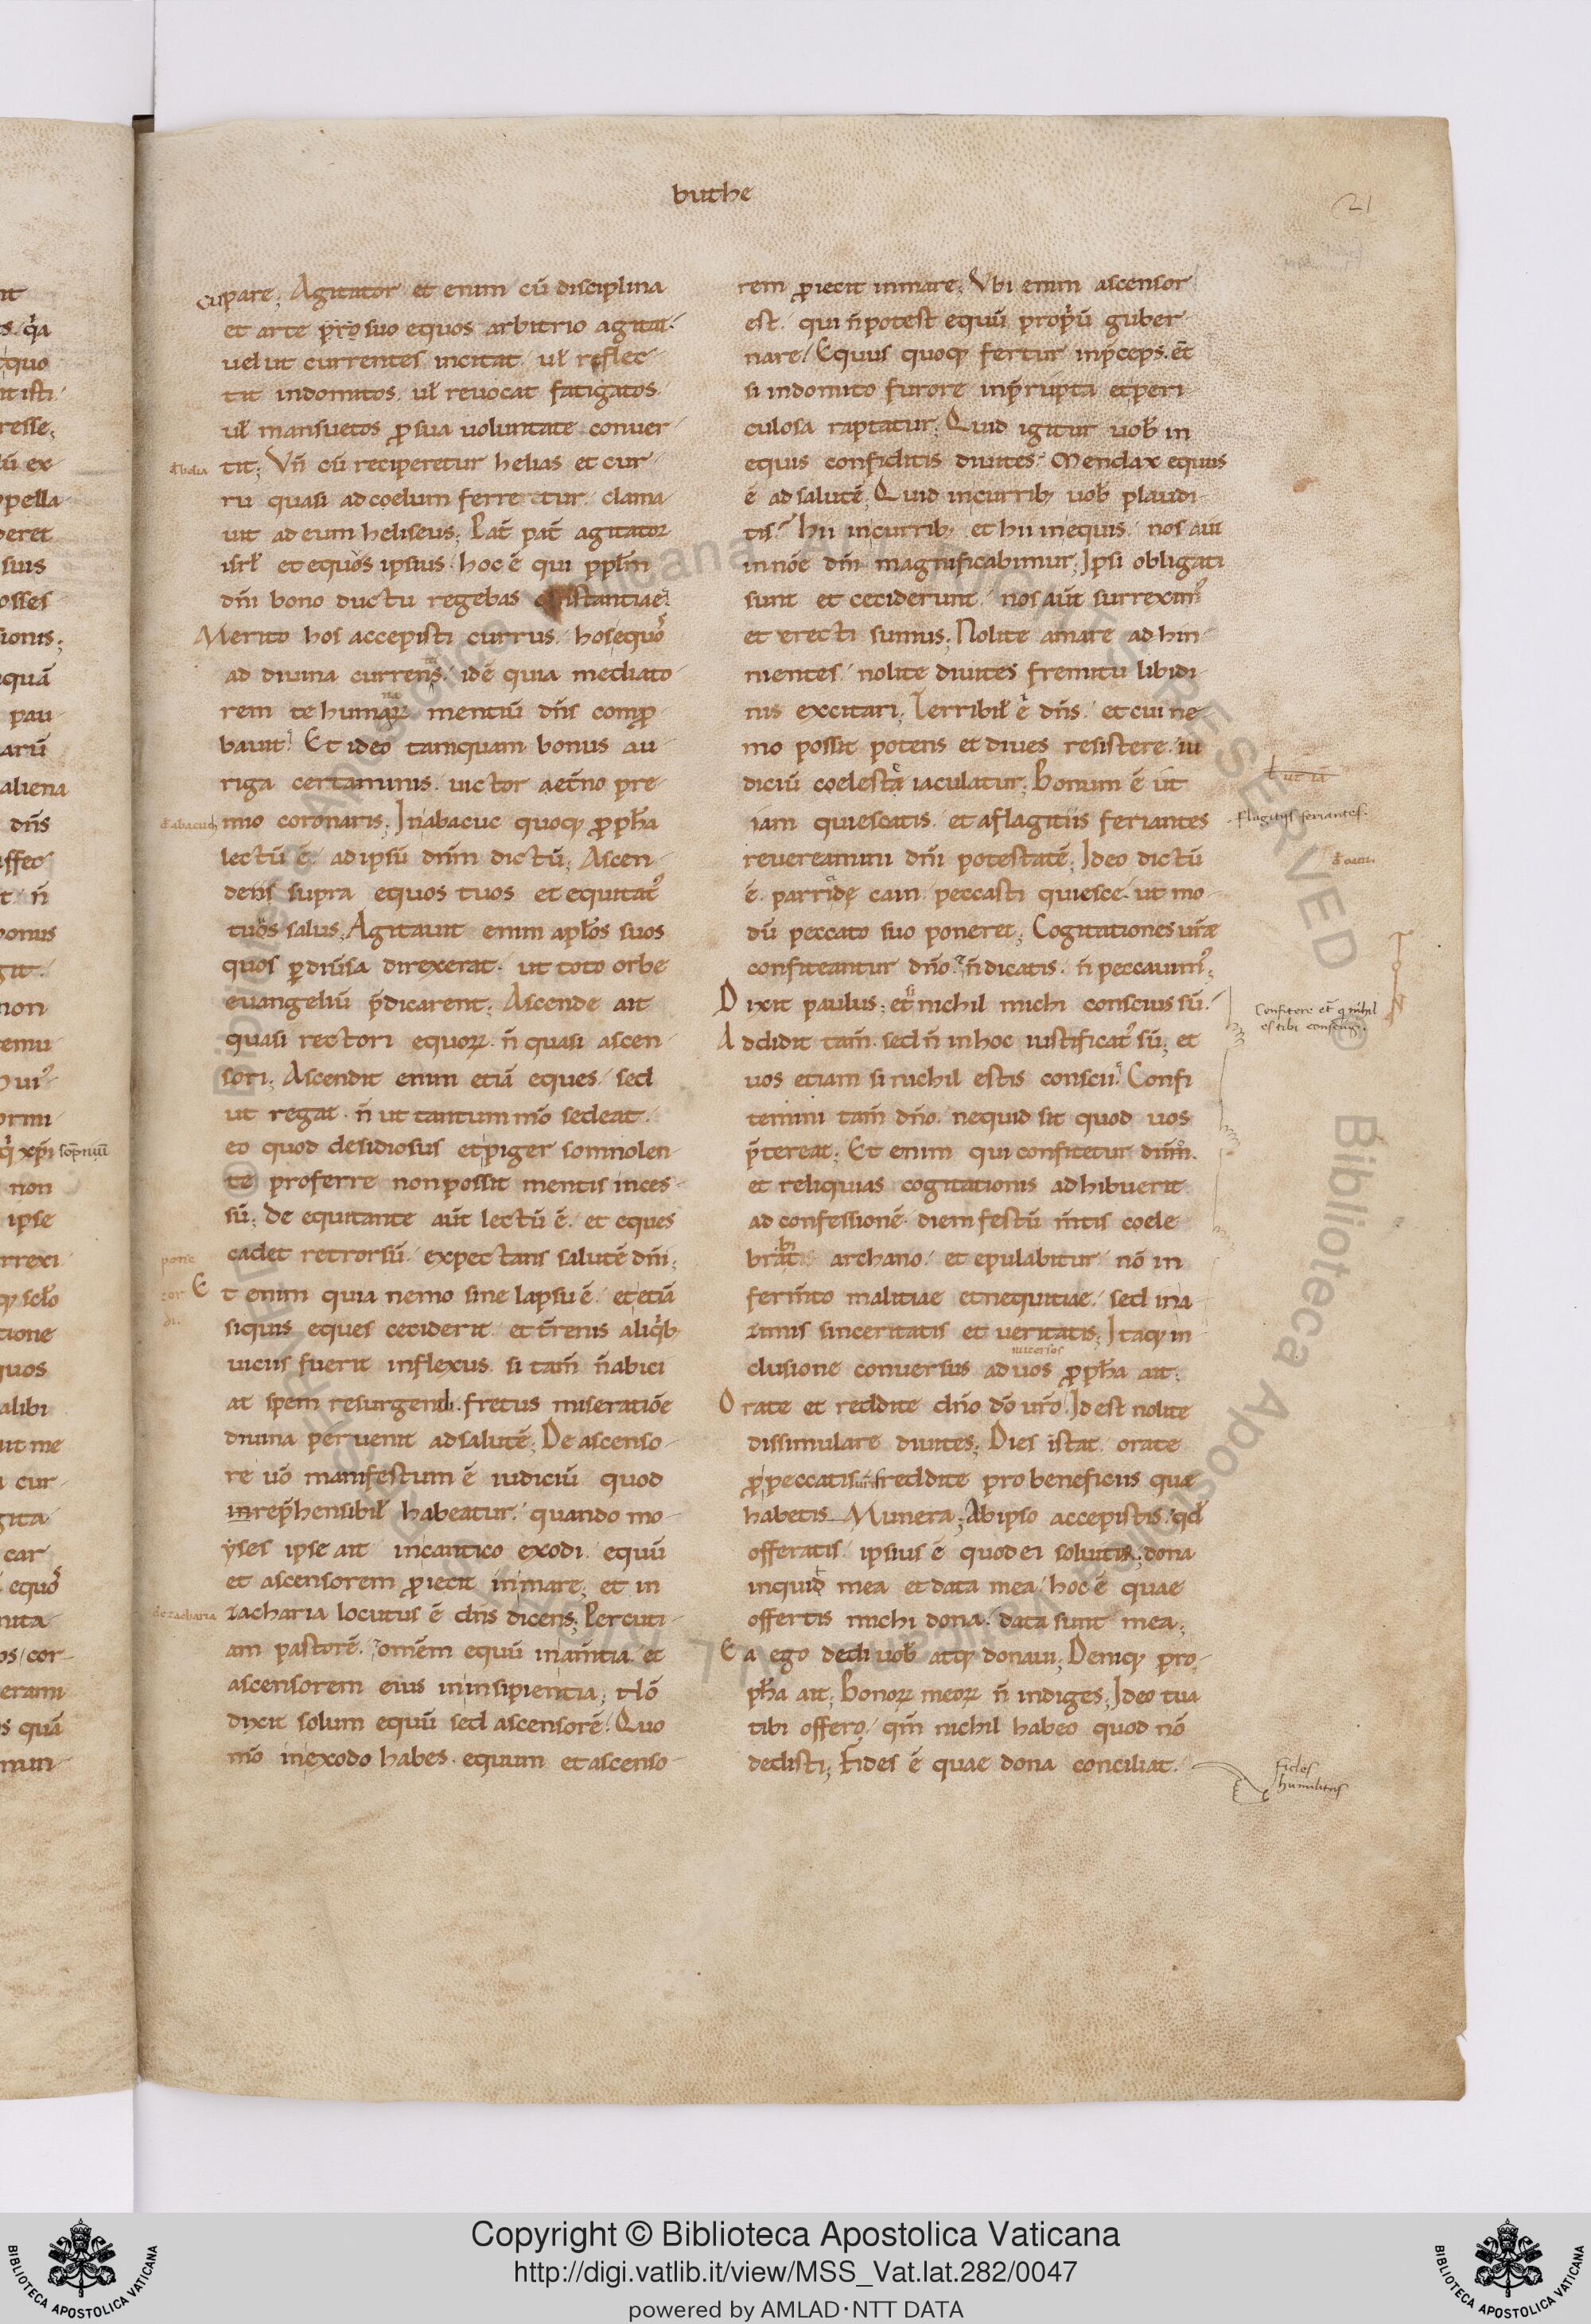 buthe
21
cupare; Agitator et enim cū disciplina
et arte pro suo equos arbitrio agitat.
uelut currentes incitat. ul̄ reflec-
tit indomitos. ul̄ reuocat fatigatos.
ul̄ mansuetos ꝓ sua uoluntate conuer-
tit; Vn̄ cū reciperetur helias et cur-
ru quasi ad coelum ferretur. clama-
uit ad eum heliseus; Pat̄ pat̄ agitator
isrl̄ et equos ipsius. hoc ē qui ppl̄m
dn̄i bono ductu regebas
Merito hos accepisti currus. hos equo᾽
ad diuina currens. idē quia mediato-
rem te humanaꝝ mentiū dn̄s comꝓ-
bauit. Et ideo tamquam bonus au-
riga certaminis. uictor aet̄no pre-
mio coronaris; In abacuc quoq; ꝓph̄a
lectū ē. ad ipsū dn̄m dictū; Ascen-
dens supra equos tuos et equitat᾽
tuos salus; Agitauit enim apl̄os suos
quos ꝑ diuīsa direxerat. ut toto orbe
euangeliū p̄dicarent; Ascende ait
quasi rectori equoꝝ. n̄ quasi ascen-
sori; Ascendit enim etiā eques. sed
ut regat. n̄ ut tantum mō sedeat.
eo quod desidiosus et piger somnolen-
te proferre non possit mentis inces-
sū; De equitante aūt lectū ē. et eques
cadet retrorsū. expectans salutē dn̄i;
Et enim quia nemo sine lapsu ē. et etiā
siquis eques ceciderit. et t̄renis aliqb;
uiciis fuerit inflexus. si tam̄ n̄ abici
at spem resurgendi. fretus miseratiōe
diuina peruenit ad salutē; De ascenso-
re uō manifestum ē iudiciū quod
inrep̄hensibil̄ habeatur. quando mo-
yses ipse ait in cantico exodi. equū
et ascensorem ꝓiecit in mare; et in
zacharia locutus ē dn̄s dicens; Percuti-
am pastorē. omēm equū in am̄tia. et
ascensorem eius in insipientia; Nō
dixit solum equū sed ascensorē. Quo
mō in exodo habes. equum et ascenso-
rem ꝓiecit in mare; Vbi enim ascensor
est. qui n̄ potest equū propriū guber-
nare. Equus quoq; fertur in p̄ceps. et̄
si indomito furore in p̄rupta et peri-
culosa raptatur; Quid igitur uob̄ in
equis confiditis diuites. Mendax equus
ē ad salutē; Quid in currib; uob̄ plaudi-
tis. hii in currib; et hii in equis. nos aut̄
in nōe dn̄i magnificabimur; Ipsi obligati
sunt et ceciderunt. nos aūt surrexim᾽
et erecti sumus; Nolite amare ad hin-
nientes. nolite diuites fremitu libidi-
nis excitari; Terribil̄ ē dn̄s. et cui ne-
mo possit potens et diues resistere. iu-
diciū coeleste iaculatur; Bonum ē ut
iam quiescatis. et a flagitiis feriantes
reuereamini dn̄i potestatē; Ideo dictū
ē parride cain. peccasti quiesce. ut mo-
dū peccato suo poneret; Cogitationes ur̄æ
confiteantur dn̄o. n̄ dicatis. n̄ peccauim᾽;
Dixit paulus; et si nichil michi conscius sū.
Addidit tam̄. sed n̄ in hoc iustificat᾽ sū; et
uos etiam si nichil estis conscii. Confi
temini tam̄ dn̄o. nequid sit quod uos
p̄tereat; Et enim qui confitetur dn̄o.
et reliquias cogitationis adhibuerit
ad confessionē. diem festū m̄tis coele
brabit archano. et epulabitur nō in
ferm̄to malitiae et nequitiae. sed in a-
zimis sinceritatis et ueritatis; Itaq; in
clusione conuersus ad uos ꝓph̄a ait;
Orate et reddite dn̄o dō ur̄o. Id est nolite
dissimulare diuites; Dies istat. orate
ꝓ peccatis uris reddite pro beneficiis quæ
habetis Munera; Ab ipso accepistis. qd̄
offeratis. ipsius ē quod ei soluitis; dona
inquid mea et data mea. hoc ē quae
offertis michi dona. data sunt mea;
Ea ego dedi uob̄ atq; donaui; Deniq; pro-
ph̄a ait; Bonoꝝ meoꝝ n̄ indiges; Ideo tua
tibi offero. qm̄ nichil habeo quod nō
dedisti; Fides ē quae dona conciliat.
flagitijs feriantes.
Confitere et̄ q nihil
es tibi conscius.
fides
humilitas
de zacharia
Copyright © Biblioteca Apostolica Vaticana
http://digi.vatlib.it/view/MSS_Vat.lat.282/0047
powered by AMLAD·NTT DATA
BIBLIOTECA APOSTOLICA VATICANA
BIBLIOTECA APOSTOLICA VATICANA